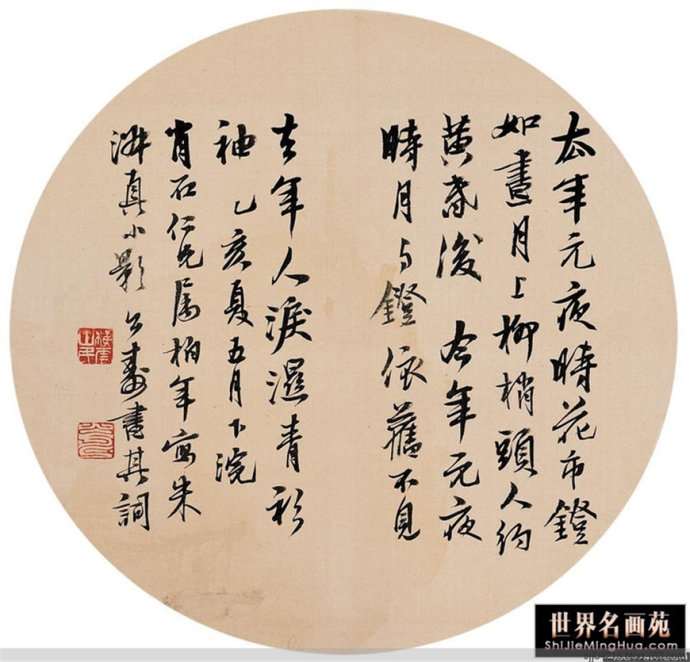 去年元夜時花市鐙
如晝月上柳梢頭人約
黃昏後 今年元夜
時月与鐙依舊不見
去年人淚濕青衫
袖 乙亥夏五月下浣
肖石仁兄屬柏年寫朱
淑真小影 公壽書其詞
世界名画苑
ShiJieMingHua.com